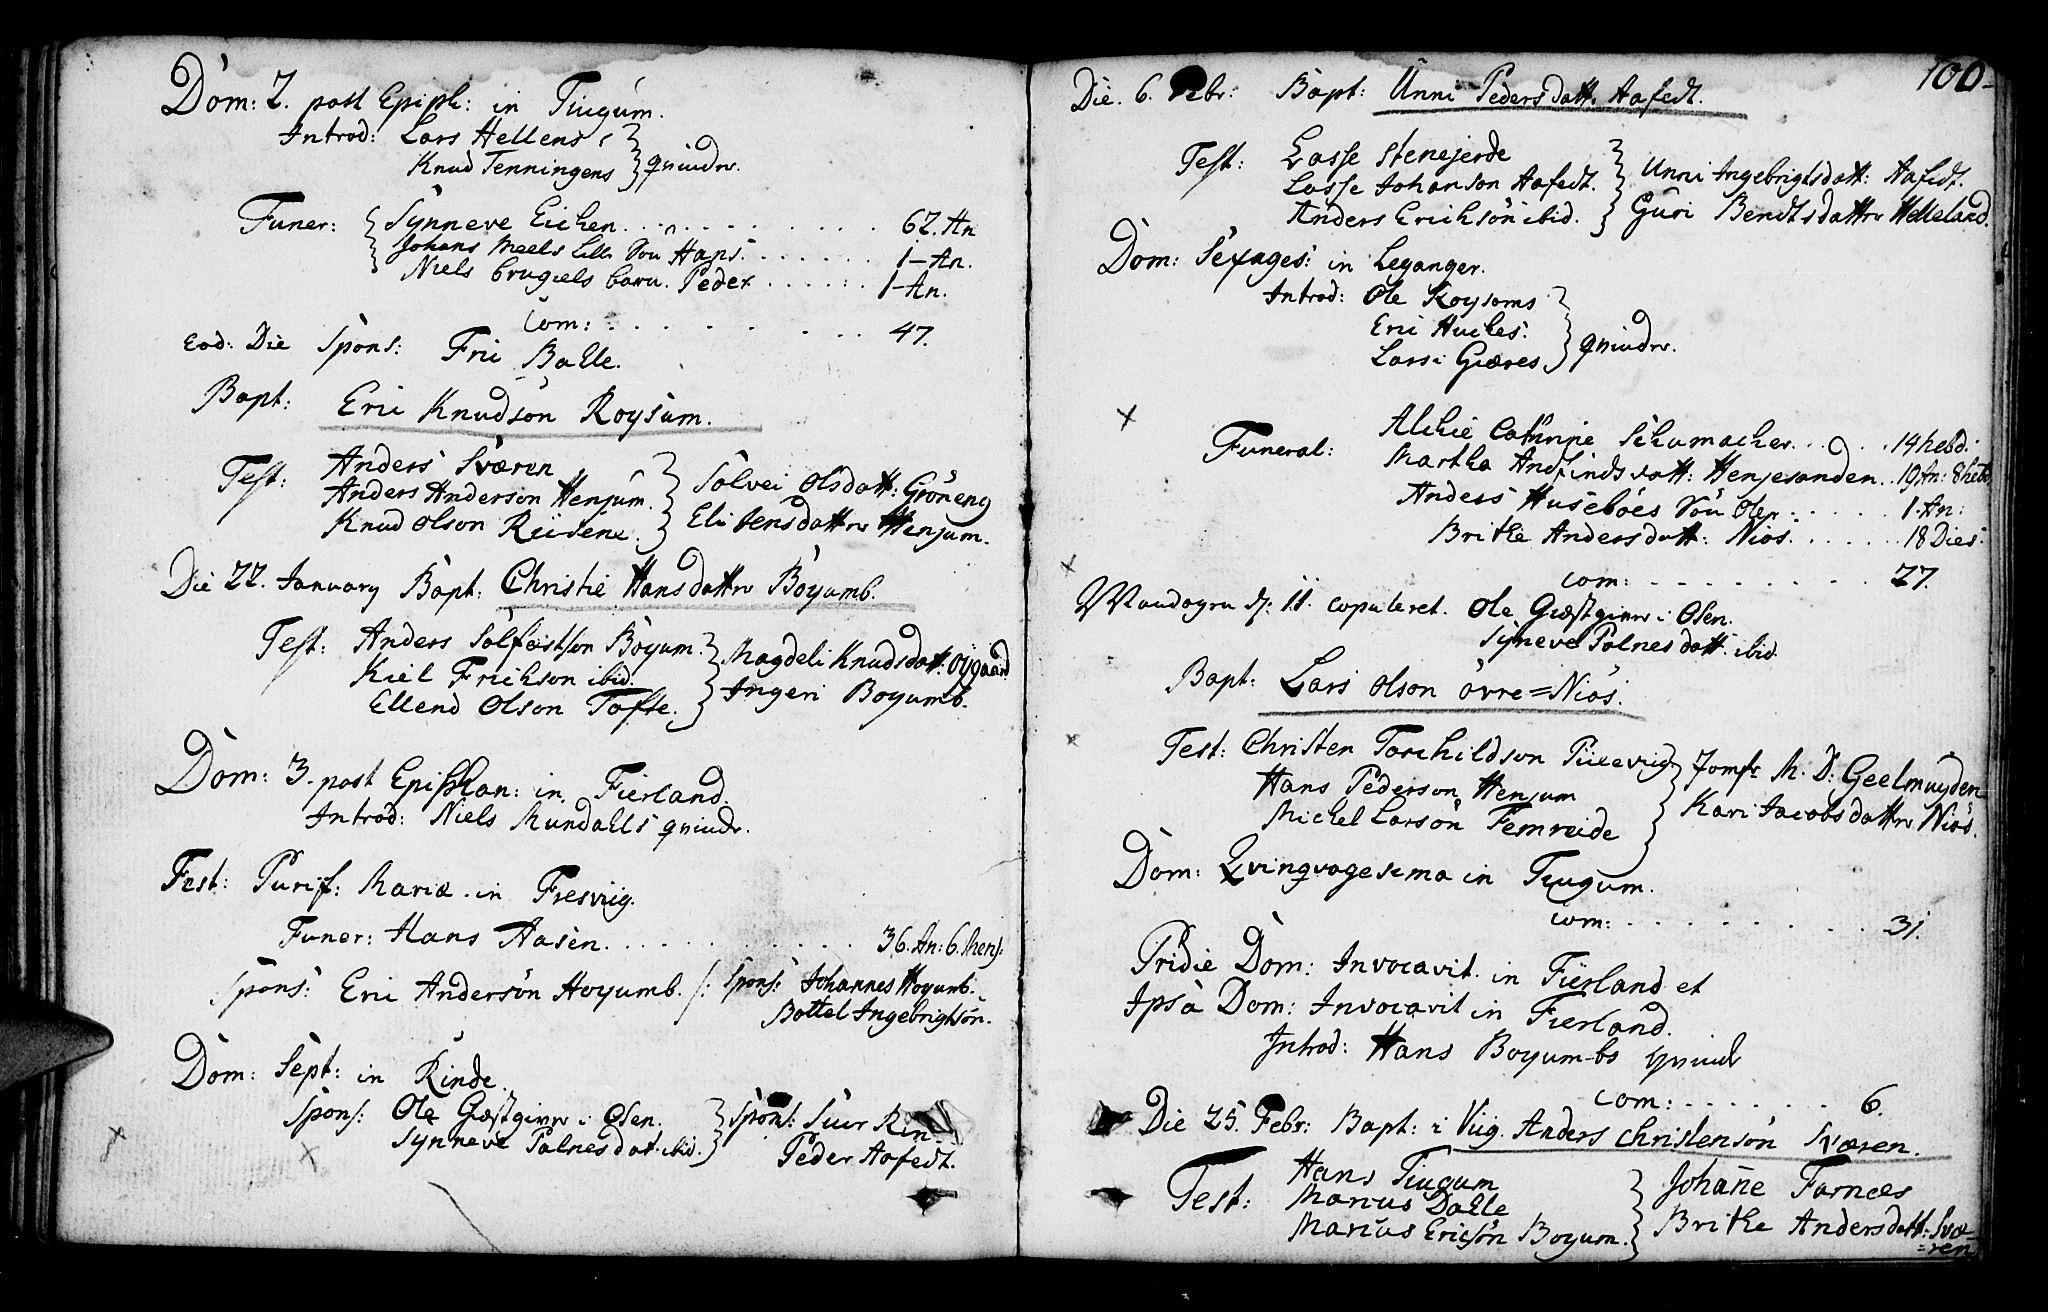 Dom: 2. post Epiph: in Tiugum.
Introd: Lars Hellens
Knud Tenningens } qvindr.
Funer: { Synneve Eichen . . . . . . . . . 62. An
Johans Meels lille Sön Hans. . . . . . . 1-An.
Niels brugiels barn. Peder . . . . . . 1-An.
Com: . . . . . . . . . 47.
Eod: Die Spons: Eric Balle.
Bapt: Eric Knudsön Roysum.
Test: Anders Sværen
Anders Anderson Henjum.
Knud Olson Reisene. } Solvei Olsdatt: Gröneng
Eli Jensdattr Henjum.
Die 22. January Bapt: Christie Hansdattr Böyumb.
Test: Anders Solfestson Böyum.
Kiel Erickson ibid.
Ellend Olson Tofte. } Magdeli Knudsdatt. Oygaard
Ingeri Boyumb.
Dom: 3. post Epiphan: in Fierland.
Introd: Niels Mundahls qvindr.
Fest: Purif: Mariæ in Fresviig.
Funer: Hans Aasen. . . . . . . . . . 36. An: 6. Mens:
Spons: Eric Andersön Hoyumb. /: Spons: Johannes Hoyumb.
Bottel Ingebrigtsön.
Dom: Sept: in Rinde.
Spons: Ole Gæstgivrr i Osen.
Synneve Palnesdat. ibid. } Spons: Siur Rin
Peder Aafedt.
100
Die. 6. Febr: Bapt: Unni Pedersdatt. Aafedt.
Test: Lasse Stenejerde
Lasse Johanson Aafedt.
Anders Erichsön ibid. } Unni Ingebrigtsdatt: Aafedt.
Guri Bendtsdattrr Helleland.
Dom: Sexages: in Leganger.
Introd: Ole Roysoms
Eric Huches.
Lars Giæres } qvindrr.
Funeral: Alchie Cathrine Schumacher. . . . 14 hebd:
Martha Andfindsdatt: Henjesanden. . 19 An: 8 heb
Anders Huseböes Sön Ole. . . . . . 1-An:
Brithe Andersdatt: Niös. . . . . . . 18 Dies:
Com: . . . . . . . . . 27.
Maadagen d: 11. copuleret. Ole Giæstgivrr i Osen.
Synneve Palnesdatt. ibid.
Bapt: Lars Olson övre=Niös.
Test: Christen Torchildson
Hans Pederson Henjum
Michel Larsön Femreide } Jomfr M. D: Geelmuyden
Kari Jacobsdattrr Niös.
Dom: Qvingvagesima in Tiugum.
Com: . . . . . . . . . . 31.
Pridie Dom: Invocavit in Fierland et
Ipsa Dom: Invocavit in Fierland.
Introd: Hans Boyum-bs qvindr
Com: . . . . . . . 6.
Die 25. Febr: Bapt: i Viig. Anders Christensön Sværen.
Test: Hans Tiugum
Marcus Dahle
Marcus Ericsön Boyum. } Johañe Farnæs
Brithe Andersdatt: Svæ-
=ren